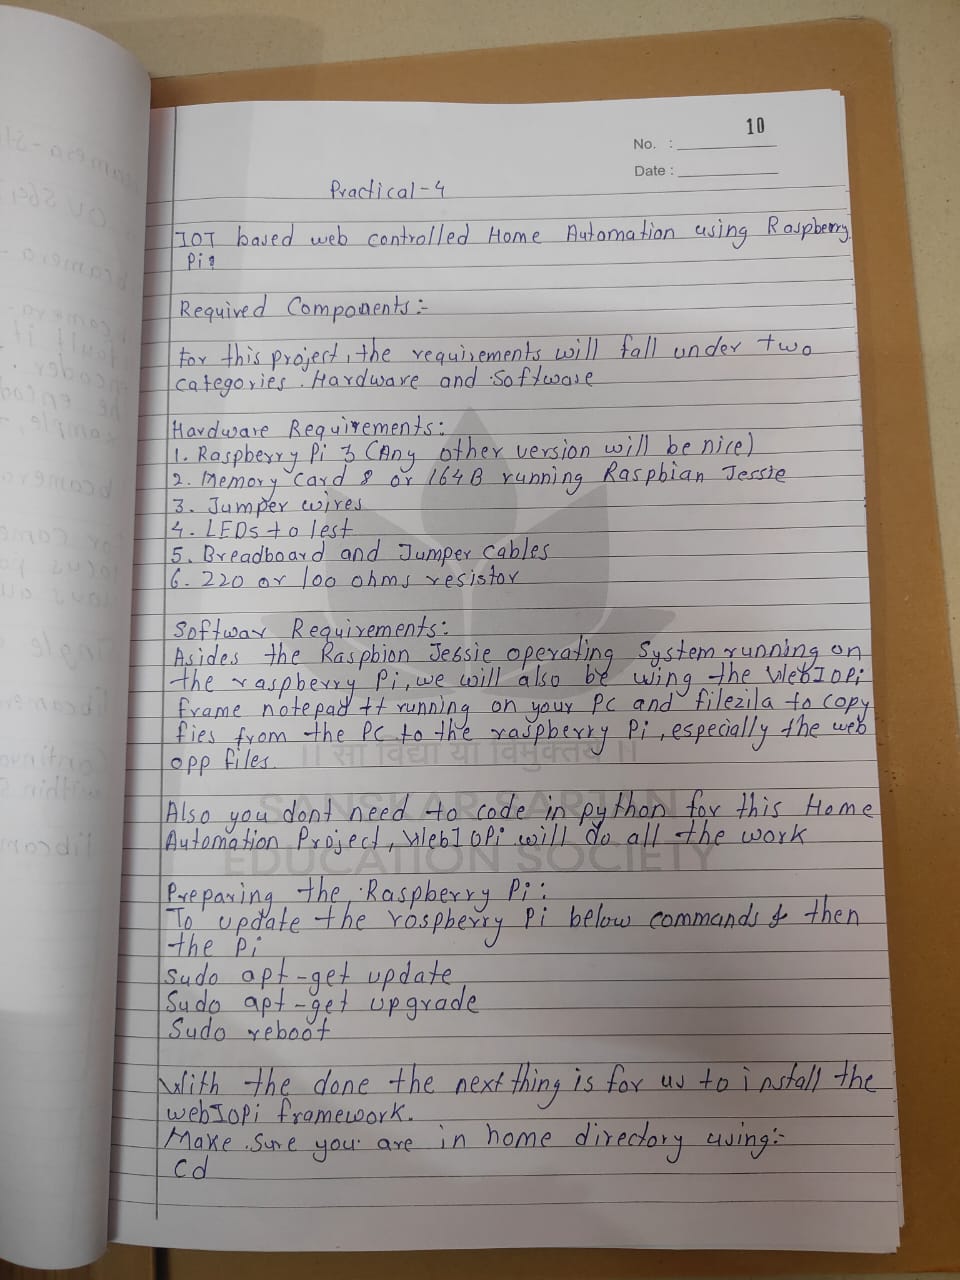 10
No. :
Date :
Practical-4
IOT based web controlled Home Automation using Raspberry
Pi:
Required Components:-
For this project, the requirements will fall under two
categories. Hardware and Software
Hardware Requirements:
1. Raspberry Pi 3 (Any other version will be nice)
2. Memory Card 8 or 164B running Raspbian Jessie
3. Jumper wires
4. LEDs to lest
5. Breadboard and Jumper cables
6. 220 or 100 ohms resistor
Softwar Requirements:
Asides the Raspbion Jessie operating System running on
the raspberry Pi, we will also be using the WebIOPi
frame notepad ++ running on your PC and filezila to copy
fies from the PC to the raspberry Pi, especially the web
opp files.
|| सा विद्या या विमुक्तये ||
SANSKAR SARJAN
EDUCATION SOCIETY
Also you dont need to code in python for this Home
Automation Project, WebIOPi will do all the work
Preparing the Raspberry Pi:
To update the rospberry Pi below commands & then
the Pi
Sudo apt-get update
Sudo apt-get upgrade
Sudo reboot
With the done the next thing is for us to install the
webIOPi framework.
Make sure you are in home directory using:-
Cd